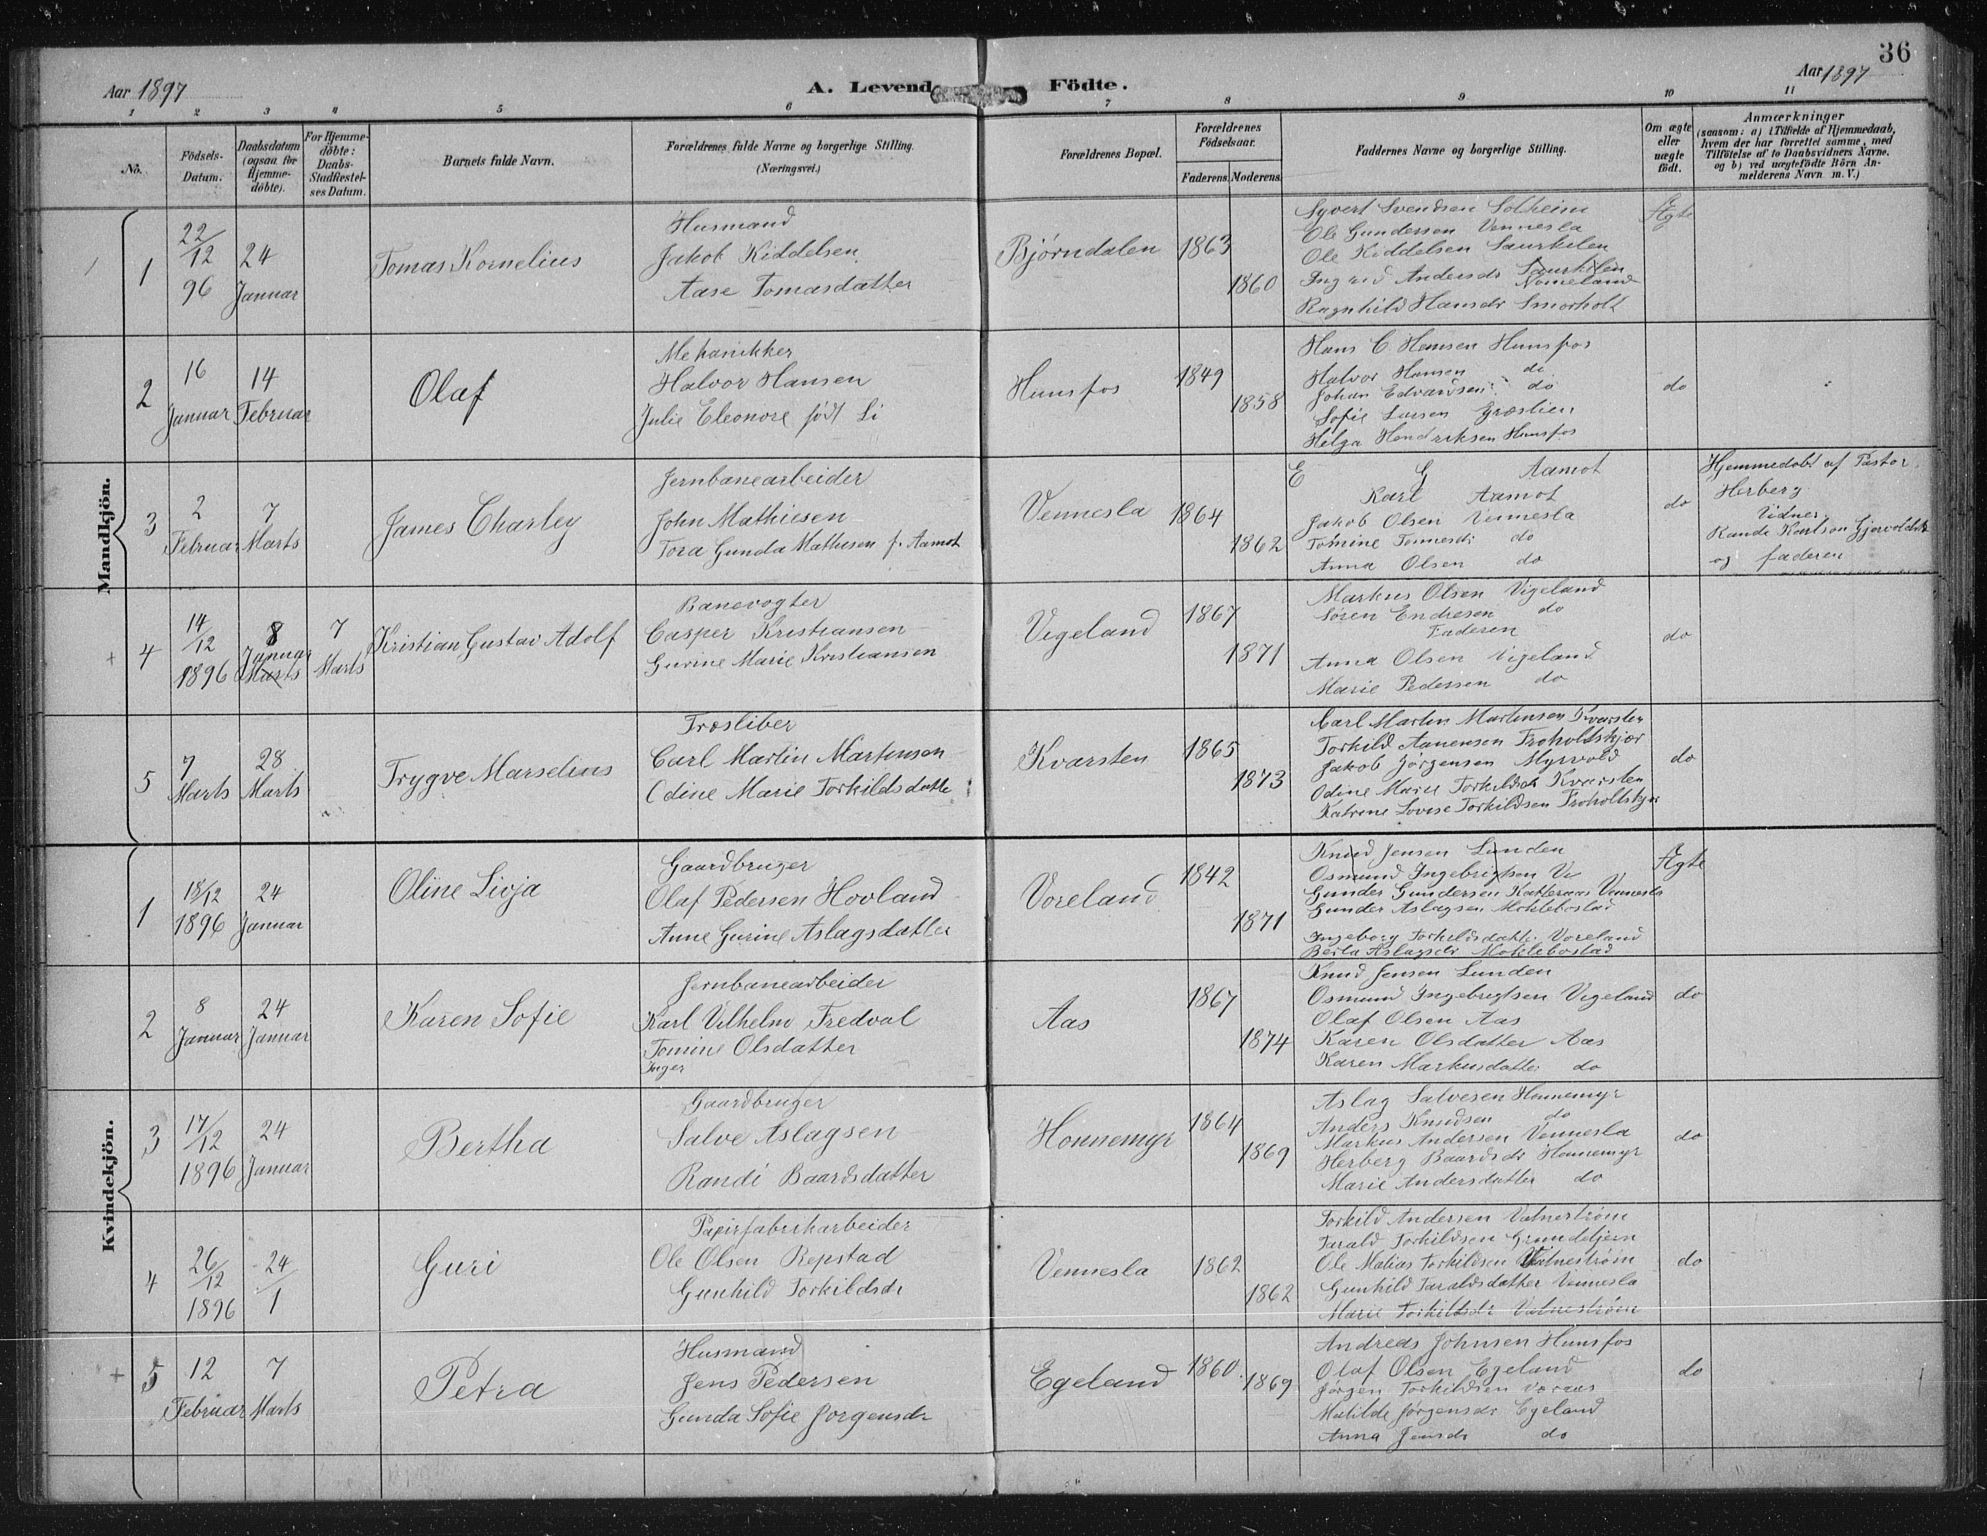 36
Aar 1897
A. Levend Födte.
Aar 1897
1 2 3 4 5 6 7 8 9 10 11
No.
Födsels-Datum.
Daabsdatum (ogsaa for Hjemme-döbte).
For Hjemme-döbte: Daabs-Stadfæstel-ses Datum.
Barnets fulde Navn.
Forældrenes fulde Navne og borgerlige Stilling. (Næringsvei.)
Forældrenes Bopæl.
Forældrenes Födselsaar.
Faderens. Moderens.
Faddernes Navne og borgerlige Stilling.
Om ægte eller uægte födt.
Anmærkninger
(saasom: a) i Tilfælde af Hjemmedaab,
hvem der har forrettet samme, med
Tilföielse af to Daabsvidners Navne,
og b) ved uægtefödte Börn An-
melderens Navn m. V.)
Mandkjön.
1
22/12 96
24 Januar
Tomas Kornelius
Husmand
Jakob Kiddelsen
Aase Tomasdatter
Bjørndalen
1863
1860
Syvert Svendsen Solheim
Ole Gundersen Vennesla
Ole Kiddelsen Saurkelen
Ingrid Andersdr Saurkilen
Nomeland
Ragnhild Hansdr Smorholt
Ægte
2
16 Januar
14 Februar
Olaf
Mekanikker
Halvor Hansen
Julie Eleonore født Li
Hunsfos
1849
1858
Hans C. Hansen Hunsfos
Halvor Hansen do
Johan Edvardsen do
Sofie Larsen Græslien
Helga Hendriksen Hunsfos
do
3
2 Februar
7 Marts
James Charley
Jernbanearbeider
John Mathiesen
Tora Gunda Mathisen f. Aamot
Vennesla
1864
1862
E G Aamot
Karl Aamot
Jakob Olsen Vennesla
Tomine Tomesdr do
Anna Olsen do
do
Hjemmedøbt af Pastor
Herberg
Vidner
og faderen
4
14/12 1896
8 Januar
Marts
7 Marts
Kristian Gustav Adolf
Banevogter
Casper Kristiansen
Gurine Marie Kristiansen
Vigeland
1867
1871
Markus Olsen Vigeland
Søren Endresen do
Faderen
Anna Olsen Vigeland
Marie Pedersen do
do
5
7 Marts
28 Marts
Trygve Marselius
Træsliber
Carl Martin Martinsen
Odine Marie Torkildsdatte
Kvarsten
1865
1873
Carl Martin Martinsen Kvarsten
Torkild Aanensen Froholtskjær
Jakob Jørgensen Myrvold
Odine Marie Torkildsdt Kvarsten
Katrine Lovise Torkildsen Froholtskjær
do
Kvindekjön.
1
18/12 1896
24 Januar
Oline Livja
Gaardbruger
Olaf Pedersen Hovland
Anne Gurine Aslagsdatter
Voreland
1842
1871
Knud Jensen Lunden
Osmund Ingebrigtsen Ve
Gunder Gundersen Katteraas Vennesla
Gunder Aslagsen Moklebostad
Ingeborg Torkildsdatter Voreland
Berta Aslagsdr Moklebostad
Ægte
2
8 Januar
24 Januar
Karen Sofie
Jernbanearbeider
Karl Vilhelm Fredval
Tomine Olsdatter
Inger
Aas
1867
1874
Knud Jensen Lunden
Osmund Ingebrigtsen Vigeland
Olaf Olsen Aas
Karen Olsdatter Aas
Karen Markusdatter do
do
3
17/12 1896
24 Januar
Bertha
Gaardbruger
Salve Aslagsen
Randi Baardsdatter
Honnemyr
1864
1869
Aslag Salvesen Honnemyr
Anders Knudsen do
Markus Andersen Vennesla
Herberg Baardsdr Honnemyr
Marie Andersdatter do
do
4
26/12 1896
24/1
Guri
Papirfabrikarbeider
Ole Olsen Repstad
Gunhild Torkildsdr
Vennesla
1862
1862
Torkild Andersen Vatnestrøm
Tarald Torkildsen Grundeljern
Ole Matias Torkildsen Vatnestrøm
Gunhild Taraldsdatter Vennesla
Marie Torkildsdr Vatnestrøm
do
5
12 Februar
7 Marts
Petra
Husmand
Jens Pedersen
Gunda Sofie Jorgensdr
Egeland
1860
1869
Andreas Johnsen Hunsfos
Olaf Olsen Egeland
Jørgen Torkildsen Voraas
Matilde Jørgensdr Egeland
Anna Jensdr do
do